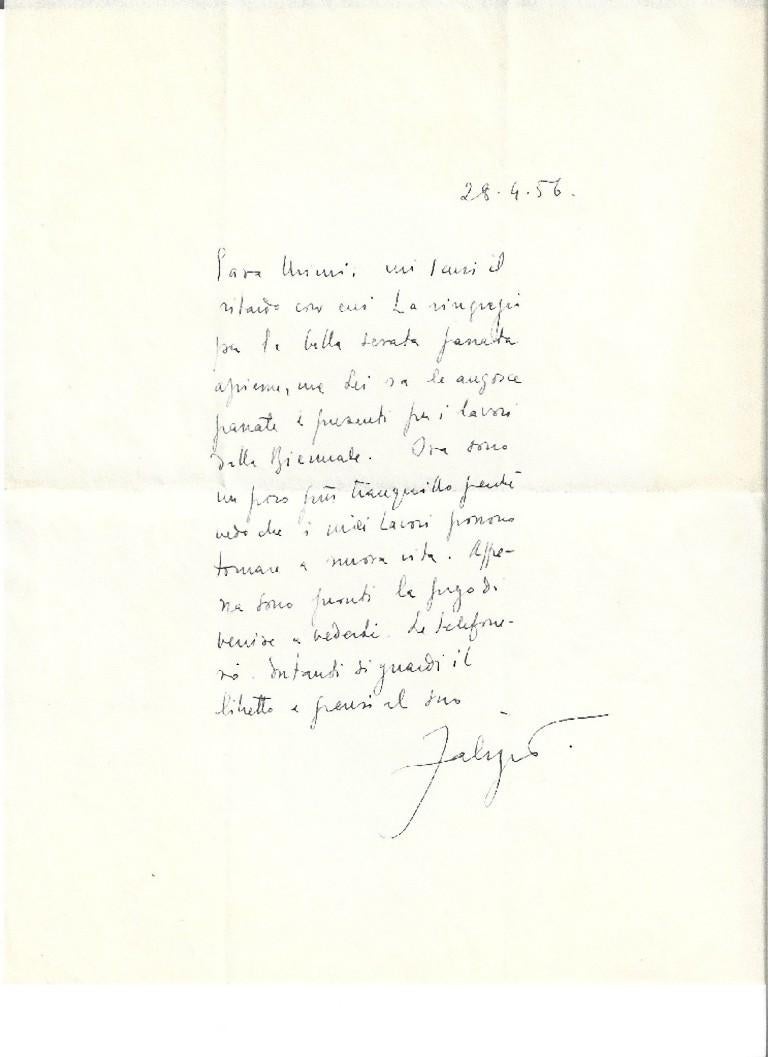 28.4.56.
Cara Mimì, mi scusi il
ritardo con cui La ringrazio
per la bella serata passata
assieme, ma Lei sa le angosce
passate e presenti per i lavori
della Biennale. Ora sono
un poco più tranquillo perché
vedo che i miei lavori possono
tornare a nuova vita. Appe-
na sono pronti la prego di
venire a vederli. Le telefone-
rò. Intanto si guardi il
libretto e pensi al suo